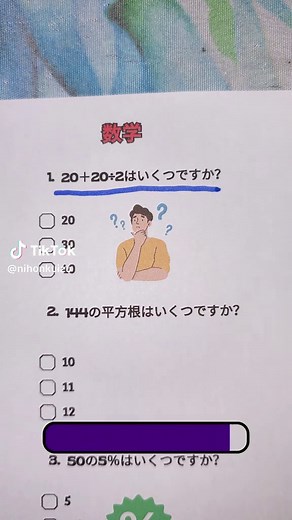 数学
1. 20+20÷2はいくつですか?
20
30
TikTok
@nihonquiz
2. 144の平方根はいくつですか?
10
11
12
3. 50の5%はいくつですか?
5
%